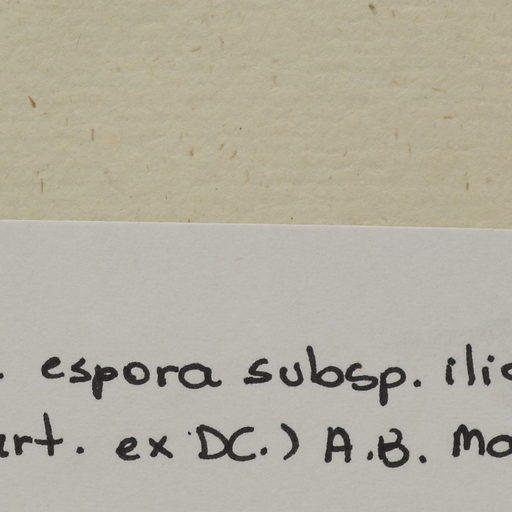 . espora subsp. ilic
art. ex DC.) A.B. Ma